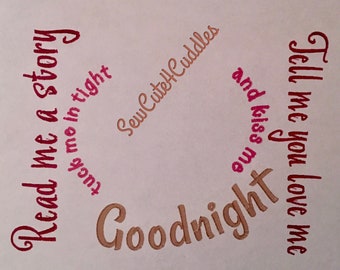 Read me a story
tuck me in tight
SewCute4Cuddles
Tell me you love me
and kiss me
Goodnight